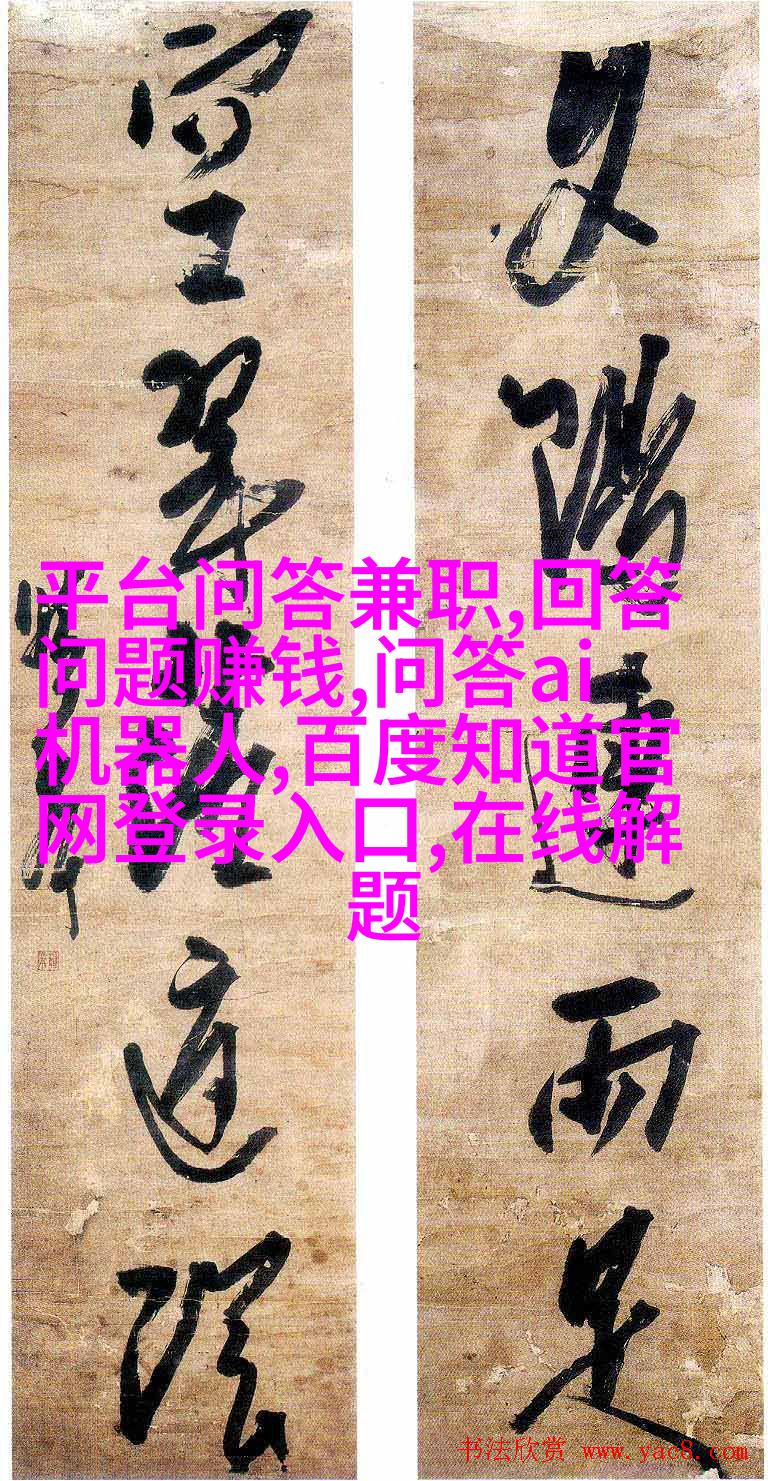 夕陽連雨足
空翠庭陰
平台问答兼职,回答
问题赚钱,问答ai
机器人,百度知道官
网登录入口,在线解
题
书法欣赏 www.yac8.com